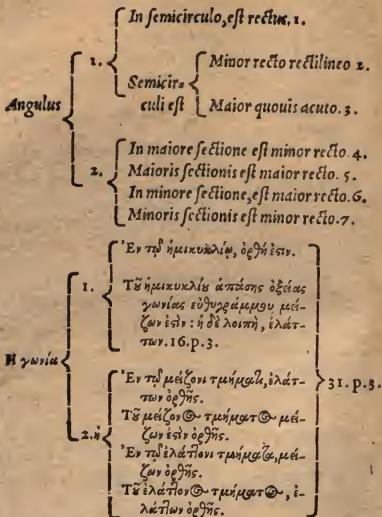 In semicirculo, est rectus. 1.
1.
Minor recto rectilineo 2.
Semicir-
culi est
Angulus
Maior quouis acuto. 3.
In maiore sectione est minor recto. 4.
2.
Maioris sectionis est maior recto. 5.
In minore sectione, est maior recto. 6.
Minoris sectionis est minor recto. 7.
Ἐν τῷ ἡμικυκλίῳ, ὀρθή ἐστιν.
1.
Τοῦ ἡμικυκλίου ἁπάσης ὀξείας
γωνίας εὐθυγράμμου μεί-
ζων ἐστὶν : ἡ δὲ λοιπὴ, ἐλάτ-
των. 16. p. 3.
Η γωνία
31. p. 3.
Ἐν τῷ μείζονι τμήματι, ἐλάτ-
των ὀρθῆς.
Τοῦ μείζονος τμήματος μεί-
2. ἡ
ζων ἐστὶν ὀρθῆς.
Ἐν τῷ ἐλάττονι τμήματι, μεί-
ζων ὀρθῆς.
Τοῦ ἐλάττονος τμήματος, ἐ-
λάττων ὀρθῆς.